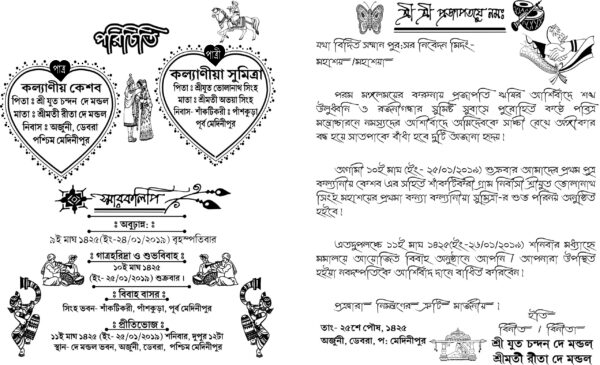 পরিচিতি
পাত্র
কল্যাণীয় কেশব
পিতা : শ্রী যুত চন্দন দে মন্ডল
মাতা : শ্রীমতী রীতা দে মন্ডল
নিবাস : অর্জুনী, ডেবরা
পশ্চিম মেদিনীপুর
পাত্রী
কল্যাণীয়া সুমিত্রা
পিতা : শ্রীযুত ভোলানাথ সিংহ
মাতা : শ্রীমতী অভয়া সিংহ
নিবাস- শাঁকটিকরী : পাঁশকুড়া
পূর্ব মেদিনীপুর
স্মারকলিপি
ঃ অবুঢ়ান্ন ঃ
৯ই মাঘ ১৪২৫(ইং-২৪/০১/২০১৯) বৃহস্পতিবার
ঃ গাত্রহরিদ্রা ও শুভবিবাহ ঃ
১০ই মাঘ ১৪২৫
(ইং- ২৫/০১/২০১৯) শুক্রবার।
ঃ বিবাহ বাসর ঃ
সিংহ ভবন- শাঁকটিকরী, পাঁশকুড়া, পূর্ব মেদিনীপুর
ঃ প্রীতিভোজ ঃ
১১ই মাঘ ১৪২৫ (ইং- ২৬/০১/২০১৯) শনিবার, দুপুর ১২টা
স্থান- দে মন্ডল ভবন, অর্জুনী, ডেবরা, পশ্চিম মেদিনীপুর
শ্রী শ্রী প্রজাপতয়ে নমঃ
যথা বিহিত সম্মান পুরঃসর নিবেদন মিদং-
মহাশয়/মহাশয়া
পরম মঙ্গলময়ের করুনায় প্রজাপতি ঋষির আশির্বাদে শঙ্খ
উলুধ্বনি ও রজনীগন্ধার সুমিষ্ট সুবাসে পুরোহিত কন্ঠে পবিত্র
মন্ত্রোচ্চারনে নমস্যদের আশীর্বাদে অগ্নিদেবকে সাক্ষী রেখে অঙ্গীকার
বদ্ধ হয়ে সাতপাকে বাঁধা হবে দুটি অজানা হৃদয়।
আগামী ১০ই মাঘ (ইং- ২৫/০১/২০১৯) শুক্রবার আমাদের প্রথম পুত্র
কল্যানীয় কেশব এর সহিত শাঁকটিকরী গ্রাম নিবাসী শ্রীযুত ভোলানাথ
সিংহ মহাশয়ের প্রথমা কন্যা কল্যানীয়া সুমিত্রা-র শুভ পরিনয় অনুষ্ঠিত
হইবে।
এতদুপলক্ষে ১১ই মাঘ ১৪২৫(ইং-২৬/০১/২০১৯) শনিবার মধ্যাহ্নে
মমালয়ে আয়োজিত বিবাহ অনুষ্ঠানে আপনি / আপনারা উপস্থিত
হইয়া নবদম্পতিকে আশির্বাদ দানে বাধিত করিবেন।
পত্রদ্বারা নিমন্ত্রণের ত্রুটি মার্জনীয়।
ইতি
বিনীত / বিনীতা
তাং- ২৫শে পৌষ, ১৪২৫
অর্জুনী, ডেবরা, প: মেদিনীপুর
শ্রী যুত চন্দন দে মন্ডল
শ্রীমতী রীতা দে মন্ডল